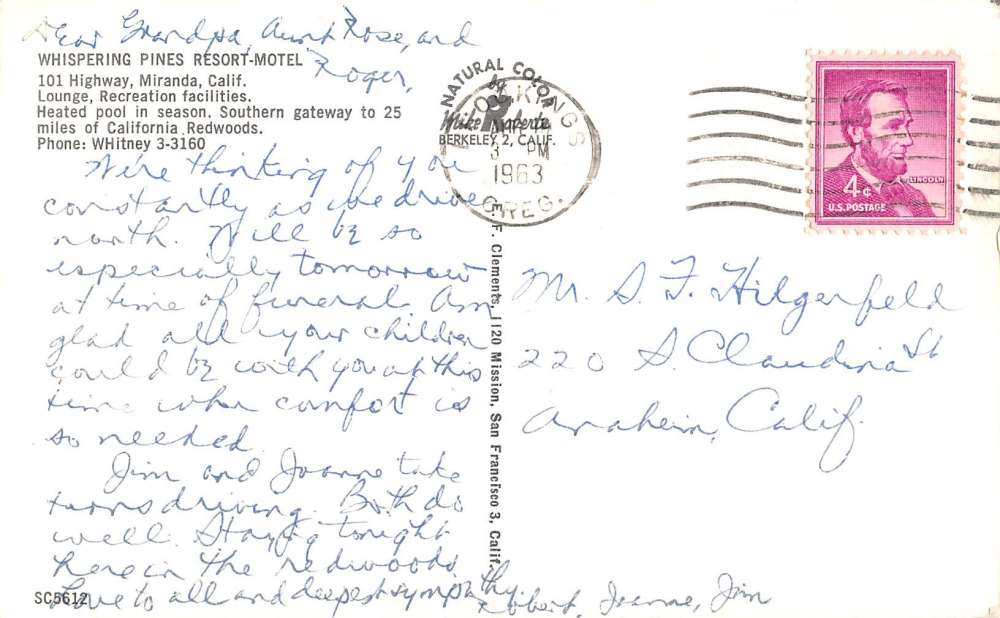 Dear Grandpa, Aunt Rose, and
Roger,
WHISPERING PINES RESORT-MOTEL
101 Highway, Miranda, Calif.
Lounge, Recreation facilities.
Heated pool in season. Southern gateway to 25
miles of California Redwoods.
Phone: WHitney 3-3160
We're thinking of you
constantly as we drive
north. Will be so
especially tomorrow
at time of funeral. Am
glad all your children
could be with you at this
time when comfort is
so needed.
Jim and Joanne take
turns driving. Both do
well. Staying tonight
here in the redwoods.
Love to all and deepest sympathy.
Robert, Joanne, Jim
SC5612
NATURAL COLOR
by
Mike Roberts
BERKELEY 2, CALIF.
BROOKINGS
PM
1963
OREG.
F. Clements, 1120 Mission, San Francisco 3, Calif.
4¢
LINCOLN
U.S. POSTAGE
Mr. S. F. Hilgenfeld
220 S. Claudina St
Anaheim, Calif.